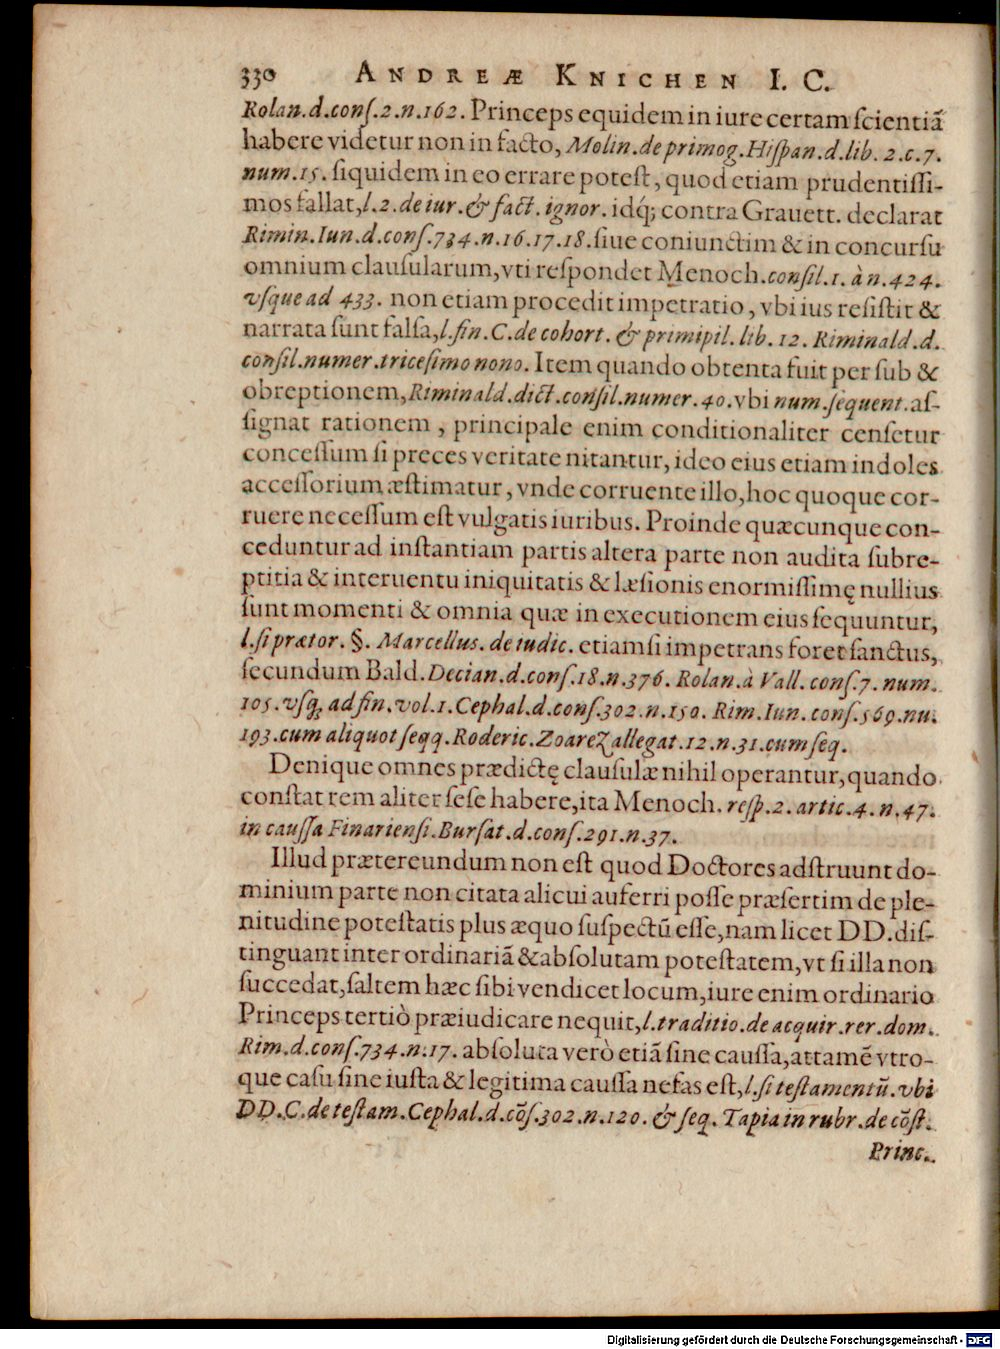 330 ANDREÆ KNICHEN I. C.
Rolan.d.conſ.2.n.162. Princeps equidem in iure certam ſcientiã
habere videtur non in facto, Molin.de primog.Hiſpan.d.lib. 2.c.7.
num.15. ſiquidem in eo errare poteſt, quod etiam prudentiſſi-
mos fallat,l.2.de iur.& fact.ignor. idq́; contra Grauett. declarat
Rimin.Iun.d.conſ.734.n.16.17.18.ſiue coniunctim & in concurſu
omnium clauſularum,vti reſpondet Menoch.conſil.1. à n.424.
vſque ad 433. non etiam procedit impetratio, vbi ius reſiſtit &
narrata ſunt falſa,l.fin.C.de cohort. & primipil. lib. 12. Riminald.d.
conſil.numer.triceſimo nono. Item quando obtenta fuit per ſub &
obreptionem,Riminald.dict.conſil.numer.40.vbi num.ſequent.aſ-
ſignat rationem, principale enim conditionaliter cenſetur
conceſſum ſi preces veritate nitantur, ideo eius etiam indoles
acceſſorium æſtimatur, vnde corruente illo, hoc quoque cor-
ruere neceſſum eſt vulgatis iuribus. Proinde quæcunque con-
ceduntur ad inſtantiam partis altera parte non audita ſubre-
ptitia & interuentu iniquitatis & læſionis enormiſſimę nullius
ſunt momenti & omnia quæ in executionem eius ſequuntur,
l.ſi prætor. §. Marcellus. de iudic. etiamſi impetrans foret ſanctus,
ſecundum Bald.Decian.d.conſ.18.n.376. Rolan.à Vall. conſ.7. num.
105.vſq; ad fin.vol.1.Cephal.d.conſ.302.n.150. Rim.Iun. conſ.569.nu.
193.cum aliquot ſeqq.Roderic.Zoarez allegat.12.n.31.cum ſeq.
Denique omnes prædictę clauſulæ nihil operantur,quando
conſtat rem aliter ſeſe habere,ita Menoch. reſp.2. artic.4. n.47.
in cauſſa Finarienſi.Burſat.d.conſ.291.n.37.
Illud prætereundum non eſt quod Doctores adſtruunt do-
minium parte non citata alicui auferri poſſe præſertim de ple-
nitudine poteſtatis plus æquo ſuſpectũ eſſe,nam licet DD.diſ-
tinguant inter ordinariã & abſolutam poteſtatem,vt ſi illa non
ſuccedat,ſaltem hæc ſibi vendicet locum,iure enim ordinario
Princeps tertiò præiudicare nequit,l.traditio.de acquir.rer.dom.
Rim.d.conſ.734.n.17. abſoluta verò etiã ſine cauſſa,attamẽ vtro-
que caſu ſine iuſta & legitima cauſſa nefas eſt,l.ſi teſtamentũ.vbi
DD.C.de teſtam.Cephal.d.cõſ.302.n.120. & ſeq. Tapia in rubr.de cõſt.
Princ.
Digitalisierung gefördert durch die Deutsche Forschungsgemeinschaft - DFG